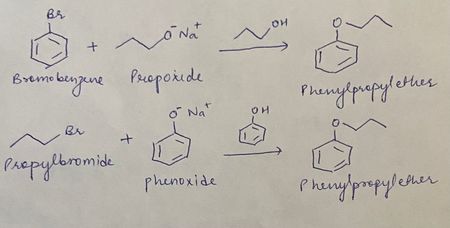 Br
+ O⁻ Na⁺ OH O
Bromobenzene Propoxide Phenylpropylether
Br + O⁻ Na⁺ OH O
Propylbromide phenoxide Phenylpropylether